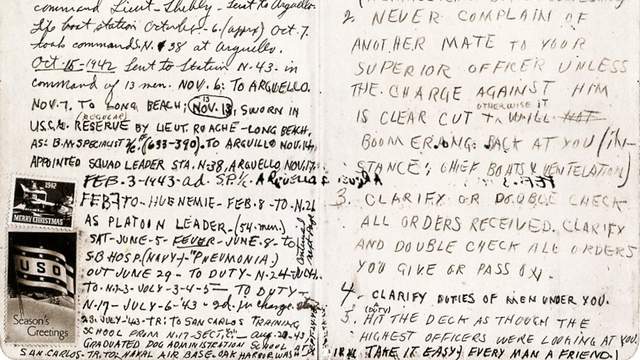 command Lieut- Shelby - Sent to Arguello
Life boat station October - 6. (appx) Oct. 7.
took command N. 38 at Arguello.
Oct 15-1942 Sent to Station N-43. in
command of 13 men. NOV. 6: TO ARGUELLO.
NOV-7, TO LONG BEACH; NOV. 13, SWORN IN
13
U.S.C.G. RESERVE BY LIEUT ROACHE-LONG BEACH,
(REGULAR)
AS: B.M. SPECIALIST (633-390). TO ARGUILLO NOV. 14,
APPOINTED SQUAD LEADER STA. N-38, ARGUELLO NOV. 17-
FEB. 3-1943-ad. S.P.
FEB 7 TO- HUENEMIE - FEB. 8-TO N.21
AS PLATOON LEADER - (54. men)
SAT-JUNE-5- FEVER- JUNE. 8- TO
S B HOSP. (NAVY) "PNEUMONIA."
OUT JUNE 29 - TO DUTY - N-24-
TO- N-3- JULY-3-4-5- TO DUTY-
N-17- JULY-6-43- 2d. in charge
23-JULY-43-TR; TO SAN CARLOS TRAINING
SCHOOL FROM N-17
GRADUATED DOG ADMINISTRATION SCHOOL
SAN CARLOS- TR. TO NAVAL AIR BASE. OAK HARBOR
1942
MERRY CHRISTMAS
USO
Season's
Greetings
2. NEVER COMPLAIN OF
ANOTHER MATE TO YOUR
SUPERIOR OFFICER UNLESS
THE CHARGE AGAINST HIM
OTHERWISE IT
IS CLEAR CUT WILL NOT
BOOMERONG BACK AT YOU (IN-
STANCE; CHIEF BOATS & VENTELATION)
3. CLARIFY OR DOUBLE CHECK
ALL ORDERS RECEIVED. CLARIFY
AND DOUBLE CHECK ALL ORDERS
YOU GIVE OR PASS ON.
4. CLARIFY DUTIES OF MEN UNDER YOU.
(DUTY)
5. HIT THE DECK AS THOUGH THE
HIGHEST OFFICERS WERE LOOKING AT YOU
TAKE IT EASY! EVERY MAN A FRIEND!